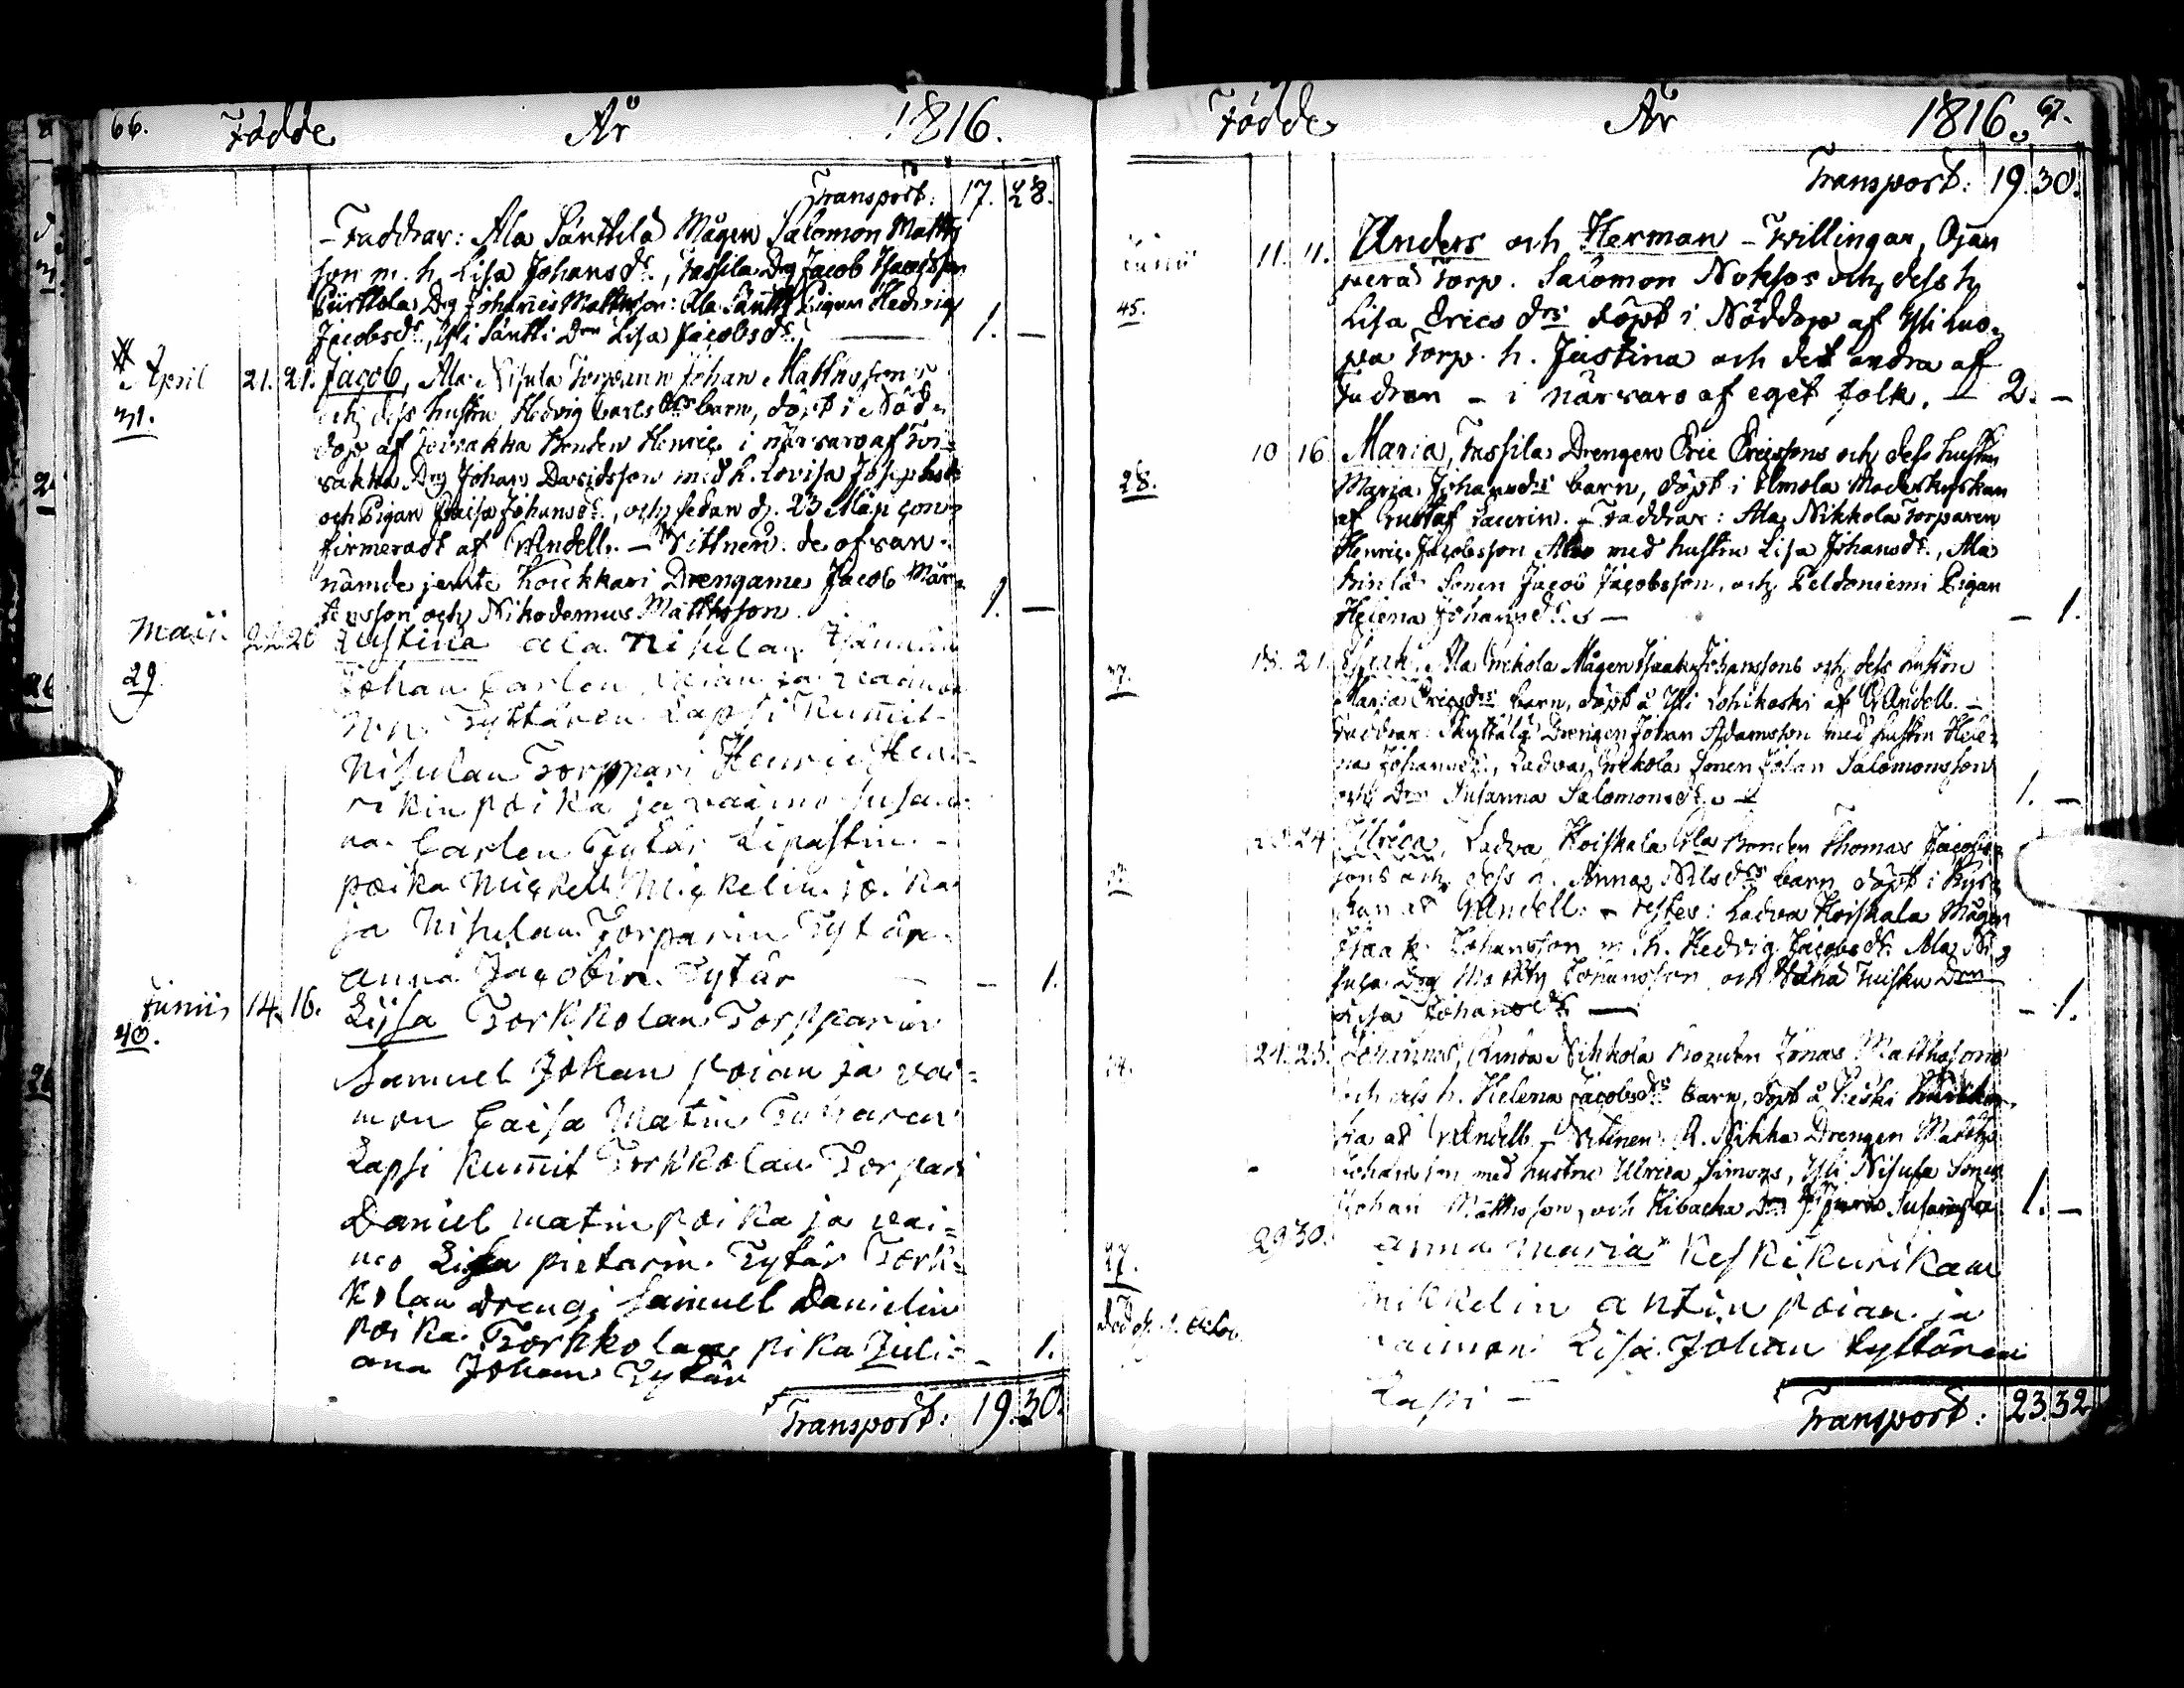 66. Födde År 1816.
Transport: 17. 28.
- Faddrar: Ala Säntti Mågen Salomon Matts
son m. h. Lisa Johansdr., Tassila Drg Jacob Isacsson
Piirttola Drg Johannes Mattsson: Ala Säntti Pigan Hedvig
Jacobsdr., Yli Säntti Dtrn Lisa Jacobsdr. 1. -
April 21. 21. Jacob, Ala Nisula Torparen Johan Mattssons
31. och dess hustru Hedvig Carls drs barn, döpt i Nöd-
dop af Bonden Henric i närvaro af
Drg Johan Davidsson med h. Lovisa Josephsdr
och Pigan Caisa Johansdr., och sedan d. 23 Maji con-
firmeradt af Wendell. - Vittnen: de ofvan-
nämde jemte Koukkari Drengarne Jacob Mår-
tensson och Nikodemus Mattsson. 1. -
Maii 22 26 Justina ala Nisulan
29. Johan Carlen Poian ja vaimon
Tyttären Lapsi Kummit-
Nisulan Torppari Henric Hen-
rikin poika ja vaimo Susa-
na Carlen Tytär Lipastin -
poika Mickell Mickelin poika
ja Nisulan Torparin Tytär
anna Jacobin Tytär - 1.
Junii 14. 16. Liisa Torkkolan Torpparin
40. Samuel Johan poian ja vai-
mon Caisa Matin Tyttären
Lapsi Kummit Torkkolan Torpari
Daniel matin poika ja vai-
mo Liisa pietarin Tytär Tork-
kolan Drengi Samuel Danielin
poika Torkkolan pika Juli-
ana Johan Tytär - 1.
Transport: 19. 30.
Födde År 1816. 67.
Transport: 19. 30.
Junii 11. 11. Anders och Herman - Tvillingar, Ojan
perä Torp. Salomon och dess h.
45. Lisa Erics drs döpt i Nöddop af Yli Luo-
pa Torp. h. Justina och det andra af
Fadren - i närvaro af eget folk. - 2. -
10 16 Maria, Tassila Drengen Eric Ericssons och dess hustru
28. Maria Johansdrs barn, döpt i Ilmola Moderkyrkan
af Gustaf - Faddrar: Ala Nikkola Torparen
Henric Jacobsson med hustru Lisa Johansdr., Ala
Sonen Jacob Jacobsson, och Peldoniemi Pigan
Helena Johansdr. - - 1.
18. 21. Isaak, Ala Mågen Isaak Johanssons och dess hustru
Maria Ericsdrs barn, döpt å Yli af Wendell. -
Faddrar: Drengen Johan Adamsson med hustru Hele-
na Johansdr., Ladva Sonen Johan Salomonsson
och Dtrn Susanna Salomonsdr. - 1. -
24 Ulrica, Ladva Koiskala Bonden Thomas Jacobs-
sons och dess h. Anna Nilsdrs barn döpt i Kyr-
kan af Wendell: - testes: Ladva Koiskala Mågen
Isaak Johansson m. h. Hedvig Jacobsdr. Ala Ni-
sula Drg Matts Johansson och
Lisa Johansdr. - - 1.
24. 25. Johannes, Nikkola Bonden Jonas Mattssons
14. och dess h. Helena Jacobsdrs barn, döpt å
af Wendell - Vittnen: Nikko Drengen Matts
Johansson med hustru Ulrica Simons, Yli Nisula Sonen
Johan Mattsson, och 1. -
29 30. Anna Maria Keskikurikan
47. Mikkelin antin poian ja
vaimon Lisa Johan tyttären
Lapsi -
Transport: 23. 32